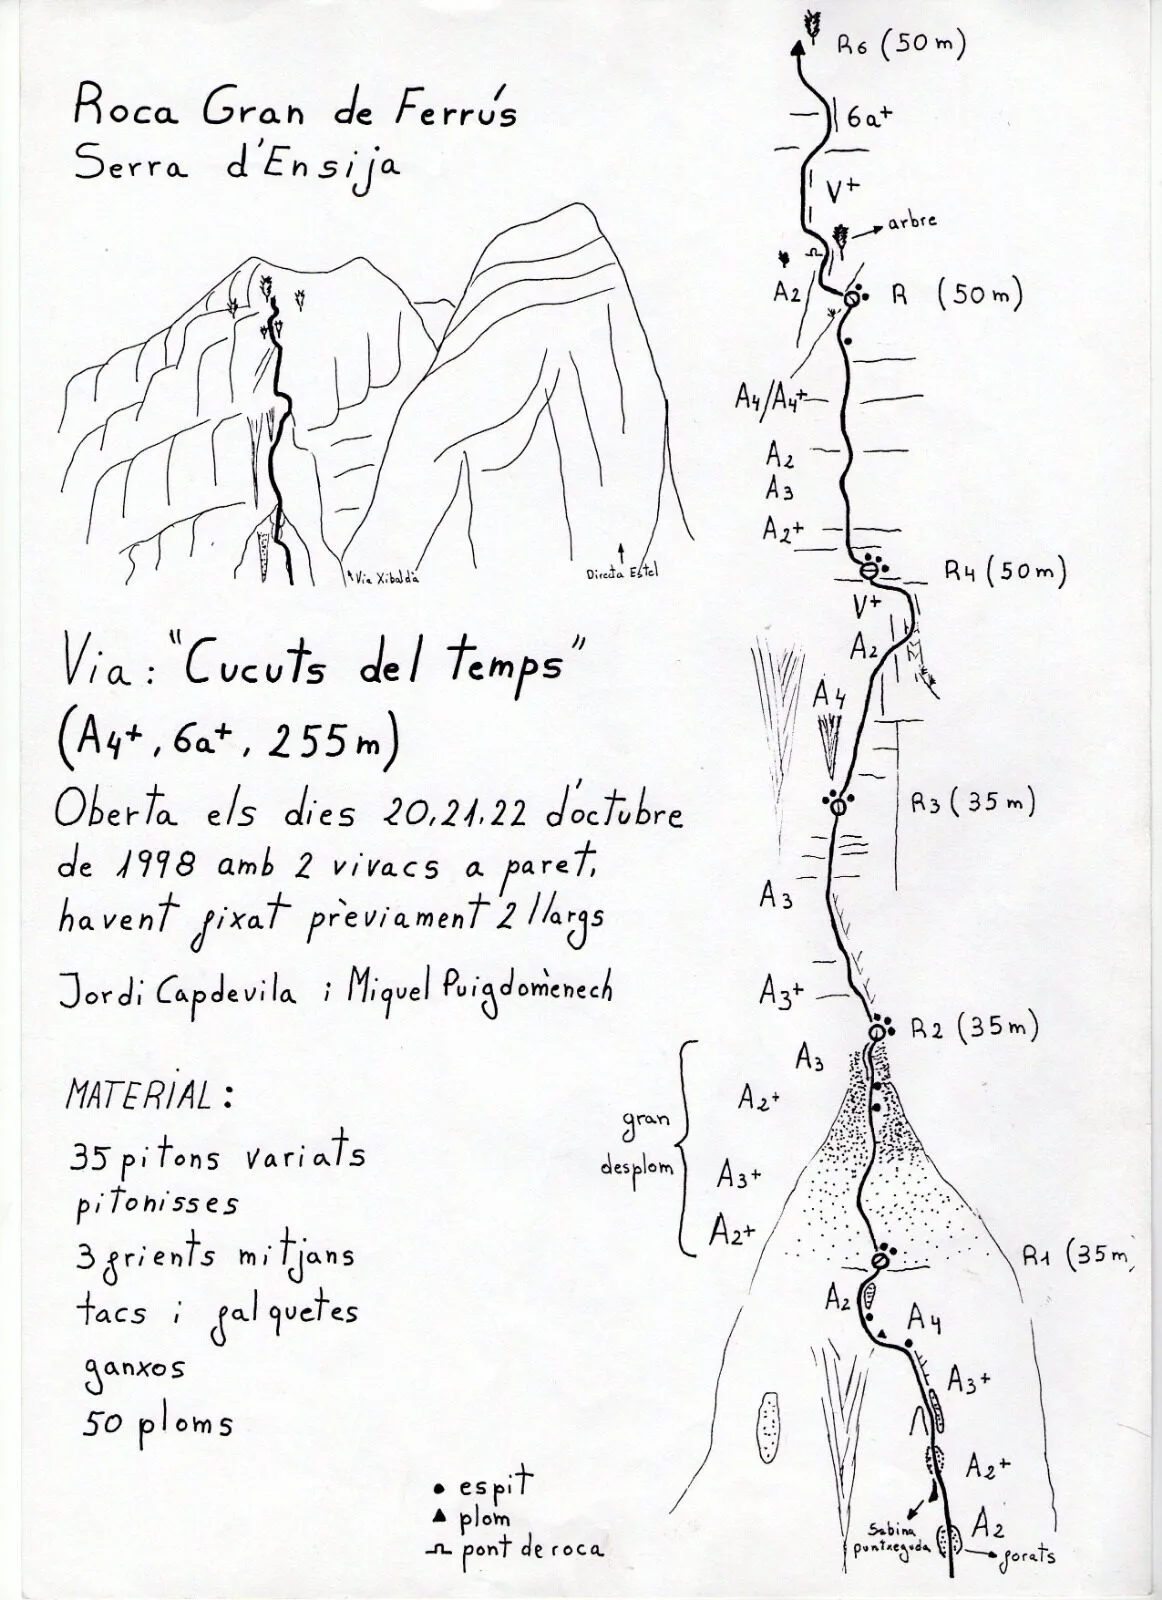 Roca Gran de Ferrús
Serra d'Ensija
Via Xibalda
Directa Estel
Via: "Cucuts del temps"
(A4+, 6a+, 255m)
Oberta els dies 20,21,22 d'octubre
de 1998 amb 2 vivacs a paret,
havent fixat prèviament 2 llargs
Jordi Capdevila i Miquel Puigdomènech
MATERIAL:
35 pitons variats
pitonisses
3 frients mitjans
tacs i falquetes
ganxos
50 ploms
espit
plom
pont de roca
R6 (50m)
6a+
V+
arbre
A2
R (50m)
A4/A4+
A2
A3
A2+
R4 (50m)
V+
A2
A4
R3 (35m)
A3
A3+
R2 (35m)
A3
A2+
gran
desplom
A3+
A2+
R1 (35m)
A2
A4
A3+
A2+
Sabina
puntxeguda
A2
forats